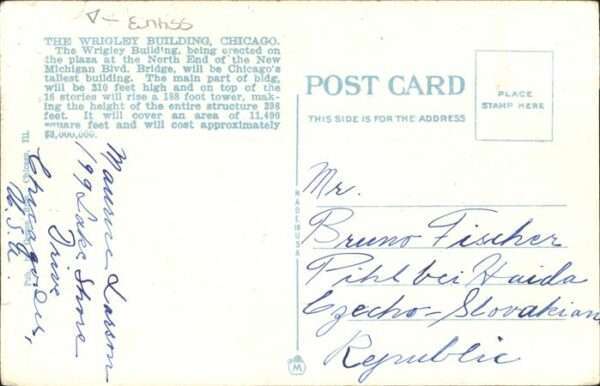 THE WRIGLEY BUILDING, CHICAGO.
The Wrigley Building, being erected on
the plaza at the North End of the New
Michigan Blvd. Bridge, will be Chicago's
tallest building. The main part of bldg.
will be 210 feet high and on top of the
16 stories will rise a 188 foot tower, mak-
ing the height of the entire structure 398
feet. It will cover an area of 11,490
square feet and will cost approximately
$3,000,000.
Maurice Larson
199 Lake Shore
Drive
Chicago, Ill,
U.S.A.
Chicago, Ill.
MADE IN USA
M
POST CARD
THIS SIDE IS FOR THE ADDRESS
PLACE
STAMP HERE
Mr.
Bruno Fischer
Pihl bei Haida
Czecho-Slovakian
Republic